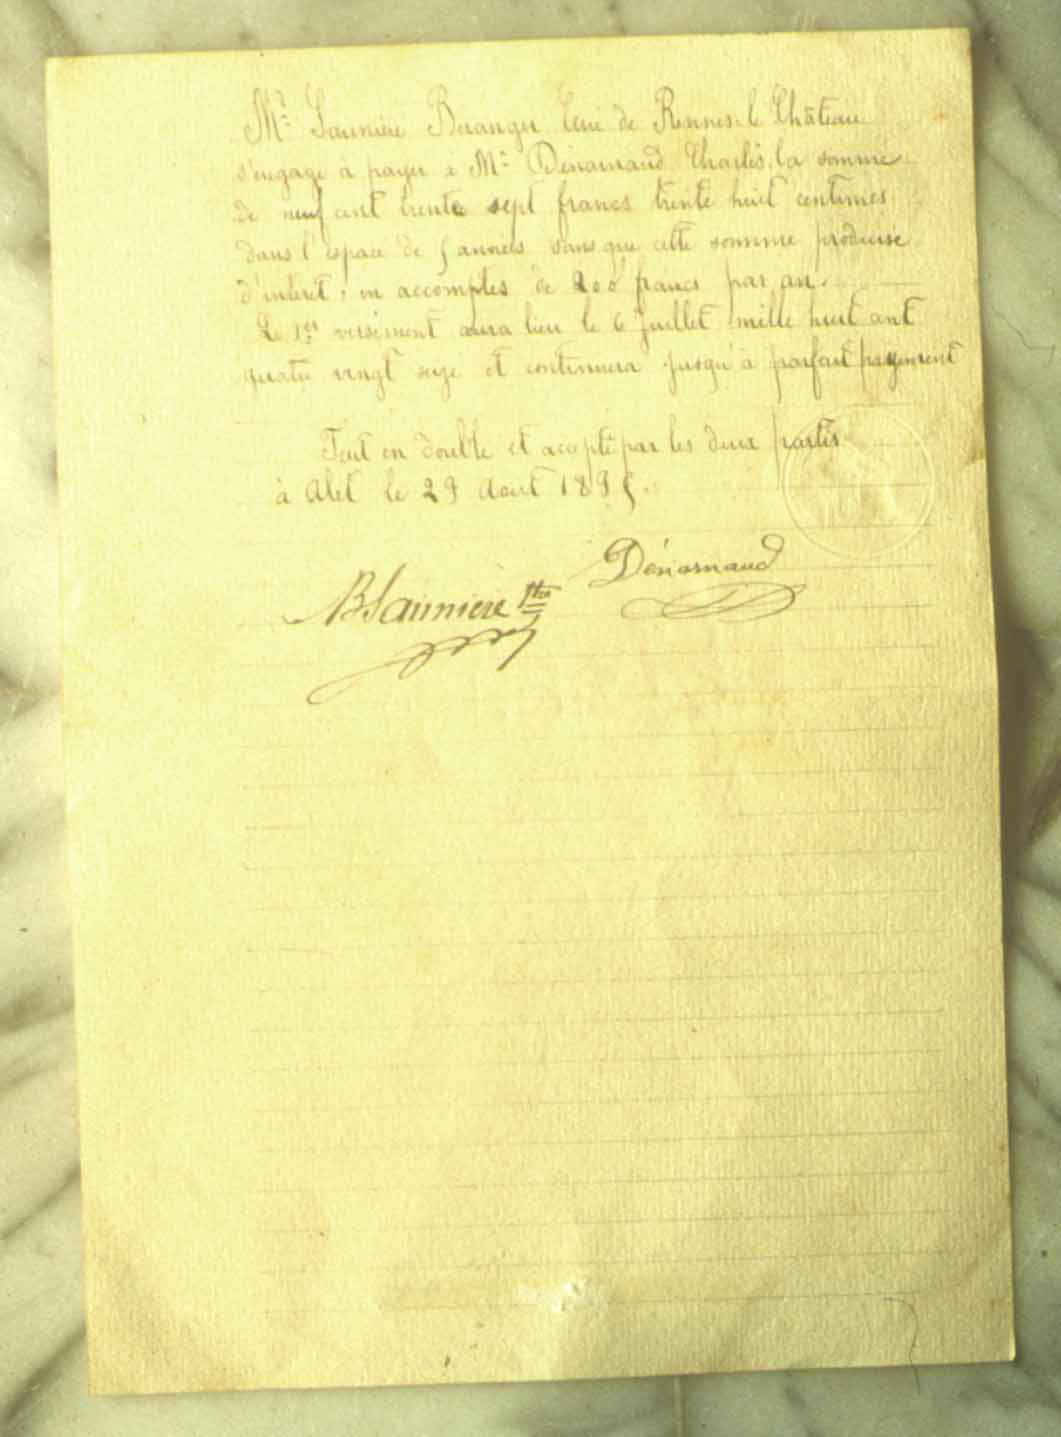 Mr Saunière Béranger Curé de Rennes-le-Château
s'engage à payer à Mr Dénarnaud Charles, la somme
de neuf cent trente sept francs trente huit centimes
dans l'espace de 5 années sans que cette somme produise
d'intéret, en accomptes de 200 francs par an.
Le 1er versement aura lieu le 6 Juillet mille huit cent
quatre vingt seize et continuera jusqu'à parfait payement
Fait en double et accepté par les deux parties
à Alet le 29 Aout 1895.
Dénarnaud
BSaunière ptre